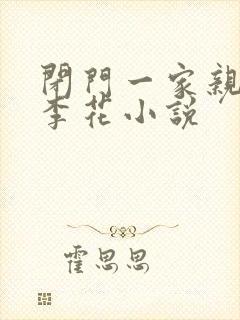 閉門一家親
李花小說
霍思思